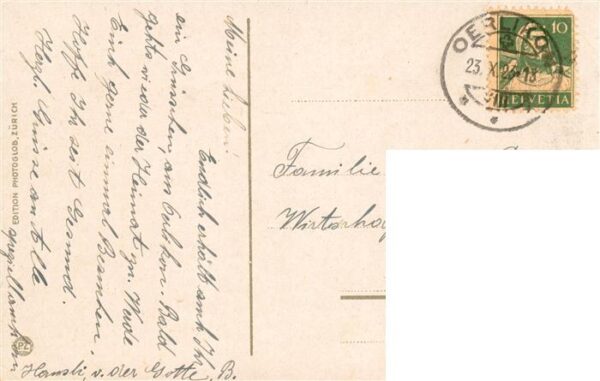 Meine Lieben!
Endlich erhält auch Ihr
ein Grüsschen, am Oerlikon. Bald
gehts wieder der Heimat zu. Werde
Euch gerne einmal Besuchen.
Hoffe Ihr seit Gesund.
Herzl. Grüsse an Alle
Hansli, v. der Gotte, B.
EDITION PHOTOGLOB, ZÜRICH
PZ
OERLIKON
23. X.
10
HELVETIA
Familie
Wirtschaf